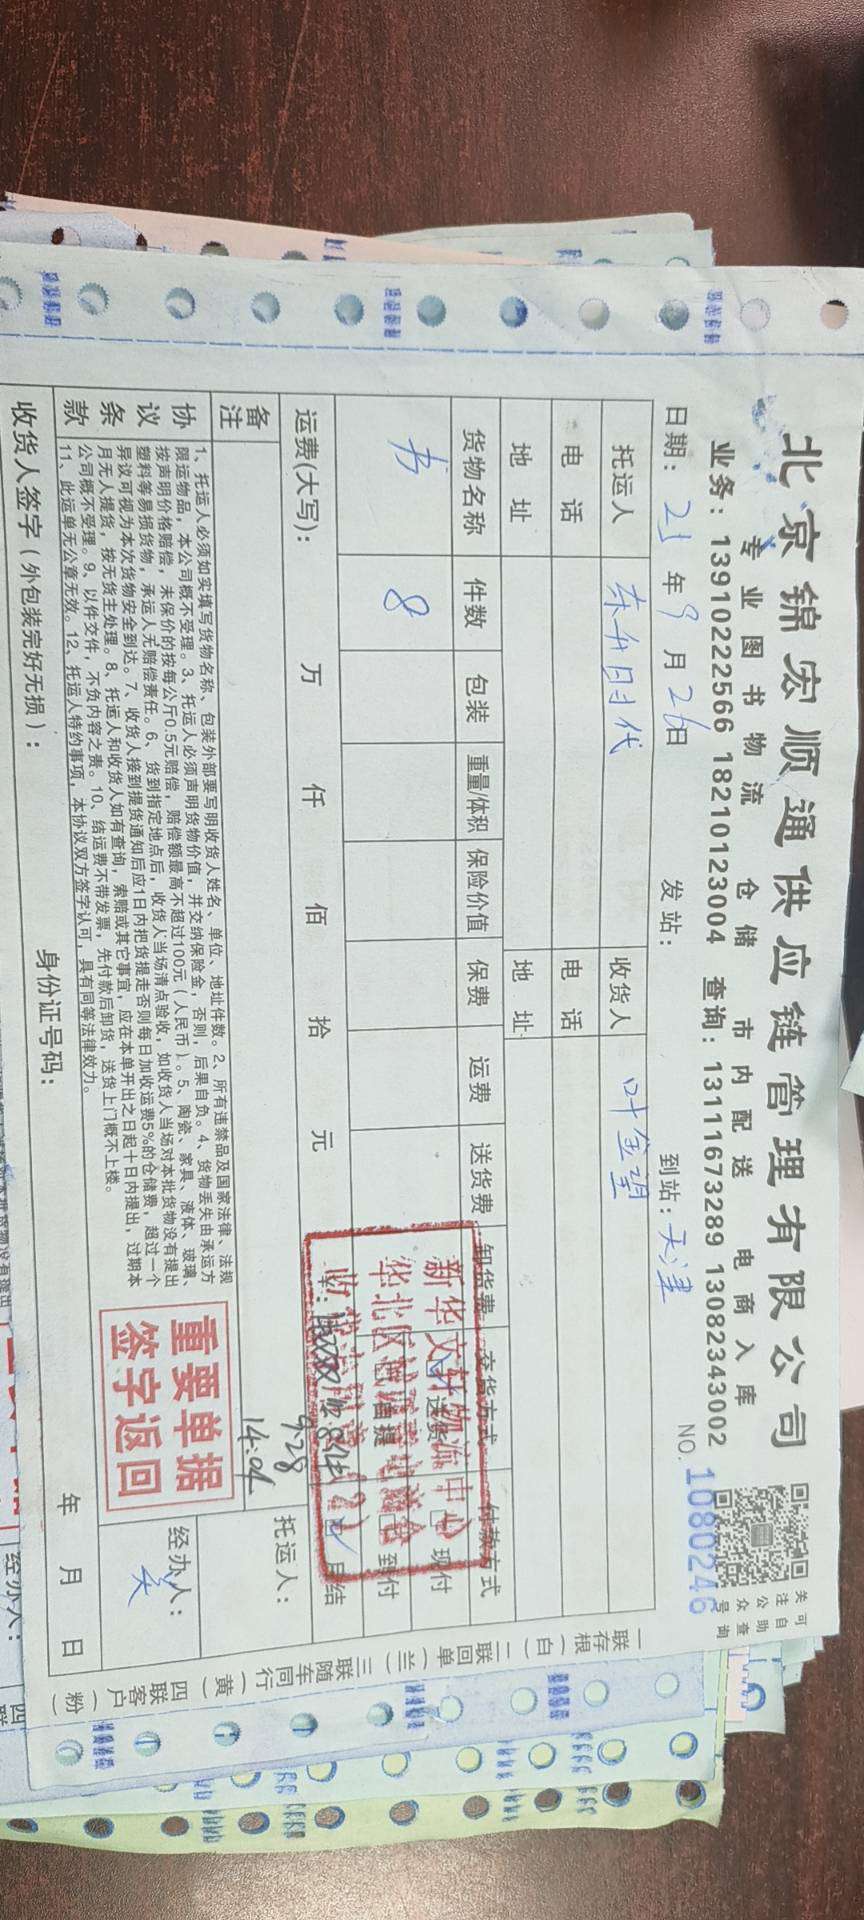 北京锦宏顺通供应链管理有限公司
专业图书物流 仓储 市内配送 电商入库
业务：13910222566 18210123004 查询：13111673289 13082343002
关注公众号
可自助查询
NO. 1080246
日期：25年9月26日 发站： 到站：天津
托运人 东升时代 收货人 叶金望
电话 电话
地址 地址
货物名称 件数 包装 重量/体积 保险价值 保费 运费 送货费 卸货费 交货方式 付款方式
书 8 送货 现付
自提 到付
月结
运费(大写)： 万 仟 佰 拾 元
新华文轩物流中心
华北区
实收8件
9.28
14:04
备注
托运人：
协议条款
1、托运人必须如实填写货物名称、包装外部要写明收货人姓名、单位、地址件数。2、所有违禁品及国家法律、法规
限运物品，本公司概不受理。3、托运人必须声明货物价值，并交纳保险金，否则，后果自负。4、货物丢失由承运方
按声明价格赔偿，未保价的按每公斤0.5元赔偿，赔偿额最高不超过100元（人民币）。5、陶瓷、家具、液体、玻璃、
塑料等易损货物，承运人无赔偿责任。6、货到指定地点后，收货人当场清点验收，如收货人当场对本批货物没有提出
异议可视为本次货物安全到达。7、收货人接到提货通知后应1日内把货提走否则每日加收运费5%的仓储费，超过一个
月无人提货，按无货主处理。8、托运人和收货人如有查询，索赔或其它事宜，应在本单开出之日起十日内提出，过期本
公司概不受理。9、以件交件，不负内容之责。10、结运费不带发票，先付款后卸货，送货上门概不上楼。
11、此运单无公章无效。12、托运人特约事项，本协议双方签字认可，具有同等法律效力。
重要单据
签字返回
经办人：
收货人签字（外包装完好无损）： 身份证号码： 年 月 日
一联存根（白） 二联回单（兰） 三联随车同行（黄） 四联客户（粉）
经办人：